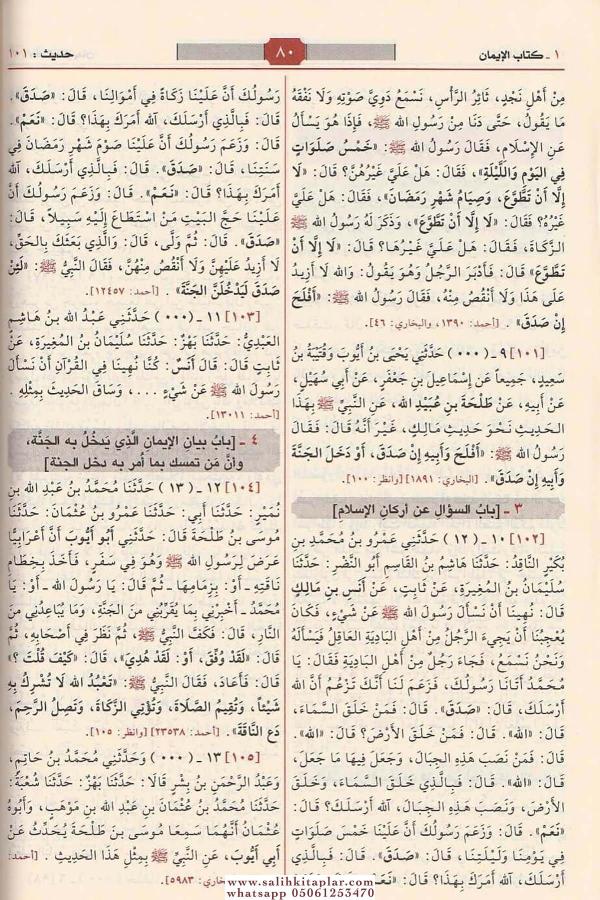 ١ ـ كتاب الإيمان
٨٠
حديث : ١٠١
مِنْ أَهْلِ نَجْدٍ، ثَائِرُ الرَّأْسِ، نَسْمَعُ دَوِيَّ صَوْتِهِ وَلَا نَفْقَهُ
مَا يَقُولُ، حَتَّى دَنَا مِنْ رَسُولِ اللهِ ﷺ، فَإِذَا هُوَ يَسْأَلُ
عَنِ الإِسْلَامِ، فَقَالَ رَسُولُ اللهِ ﷺ: «خَمْسُ صَلَوَاتٍ
فِي اليَوْمِ وَاللَّيْلَةِ»، فَقَالَ: هَلْ عَلَيَّ غَيْرُهُنَّ؟ قَالَ: «لَا
إِلَّا أَنْ تَطَّوَّعَ، وَصِيَامُ شَهْرِ رَمَضَانَ»، فَقَالَ: هَلْ عَلَيَّ
غَيْرُهُ؟ فَقَالَ: «لَا إِلَّا أَنْ تَطَّوَّعَ»، وَذَكَرَ لَهُ رَسُولُ اللهِ ﷺ
الزَّكَاةَ، فَقَالَ: هَلْ عَلَيَّ غَيْرُهَا؟ قَالَ: «لَا إِلَّا أَنْ
تَطَّوَّعَ» قَالَ: فَأَدْبَرَ الرَّجُلُ وَهُوَ يَقُولُ: وَاللهِ لَا أَزِيدُ
عَلَى هَذَا وَلَا أَنْقُصُ مِنْهُ، فَقَالَ رَسُولُ اللهِ ﷺ: «أَفْلَحَ
إِنْ صَدَقَ» . [أحمد: ١٣٩٠، والبخاري: ٤٦].
[١٠١] ٩ ـ (٠٠٠) حَدَّثَنِي يَحْيَى بنُ أَيُّوبَ وَقُتَيْبَةُ بنُ
سَعِيدٍ، جَمِيعاً عَن إِسْمَاعِيلَ بنِ جَعْفَرٍ، عَن أَبِي سُهَيْلٍ،
عَنْ أَبِيهِ، عَنْ طَلْحَةَ بنِ عُبَيْدِ اللهِ، عَنِ النَّبِيِّ ﷺ بِهَذَا
الحَدِيثِ نَحْوَ حَدِيثِ مَالِكٍ، غَيْرَ أَنَّهُ قَالَ: فَقَالَ
رَسُولُ اللهِ ﷺ: «أَفْلَحَ وَأَبِيهِ إِنْ صَدَقَ، أَوْ دَخَلَ الجَنَّةَ
وَأَبِيهِ إِنْ صَدَقَ» . [البخاري: ١٨٩١] [وانظر: ١٠٠].
٣ ـ [بابُ السؤالِ عن أركانِ الإسلامِ]
[١٠٢] ١٠ ـ (١٢) حَدَّثَنِي عَمْرُو بنُ مُحَمَّدِ بنِ
بُكَيْرٍ النَّاقِدُ: حَدَّثَنَا هَاشِمُ بنُ القَاسِمِ أَبُو النَّضْرِ: حَدَّثَنَا
سُلَيْمَانُ بنُ المُغِيرَةِ، عَنْ ثَابِتٍ، عَنْ أَنَسِ بنِ مَالِكٍ
قَالَ: نُهِينَا أَنْ نَسْأَلَ رَسُولَ اللهِ ﷺ عَنْ شَيْءٍ، فَكَانَ
يُعْجِبُنَا أَنْ يَجِيءَ الرَّجُلُ مِنْ أَهْلِ البَادِيَةِ العَاقِلُ فَيَسْأَلَهُ
وَنَحْنُ نَسْمَعُ، فَجَاءَ رَجُلٌ مِنْ أَهْلِ البَادِيَةِ فَقَالَ: يَا
مُحَمَّدُ أَتَانَا رَسُولُكَ، فَزَعَمَ لَنَا أَنَّكَ تَزْعُمُ أَنَّ اللهَ
أَرْسَلَكَ، قَالَ: «صَدَقَ». قَالَ: فَمَنْ خَلَقَ السَّمَاءَ،
قَالَ: «اللهُ». قَالَ: فَمَنْ خَلَقَ الأَرْضَ؟ قَالَ: «اللهُ».
قَالَ: فَمَنْ نَصَبَ هَذِهِ الجِبَالَ، وَجَعَلَ فِيهَا مَا جَعَلَ،
قَالَ: «اللهُ». قَالَ: فَبِالَّذِي خَلَقَ السَّمَاءَ، وَخَلَقَ
الأَرْضَ، وَنَصَبَ هَذِهِ الجِبَالَ، آللهُ أَرْسَلَكَ؟ قَالَ:
«نَعَمْ». قَالَ: وَزَعَمَ رَسُولُكَ أَنَّ عَلَيْنَا خَمْسَ صَلَوَاتٍ
فِي يَوْمِنَا وَلَيْلَتِنَا، قَالَ: «صَدَقَ». قَالَ: فَبِالَّذِي
أَرْسَلَكَ، آللهُ أَمَرَكَ بِهَذَا؟ قَالَ:
رَسُولُكَ أَنَّ عَلَيْنَا زَكَاةً فِي أَمْوَالِنَا، قَالَ: «صَدَقَ».
قَالَ: فَبِالَّذِي أَرْسَلَكَ، آللهُ أَمَرَكَ بِهَذَا؟ قَالَ: «نَعَمْ».
قَالَ: وَزَعَمَ رَسُولُكَ أَنَّ عَلَيْنَا صَوْمَ شَهْرِ رَمَضَانَ فِي
سَنَتِنَا، قَالَ: «صَدَقَ». قَالَ: فَبِالَّذِي أَرْسَلَكَ، آللهُ
أَمَرَكَ بِهَذَا؟ قَالَ: «نَعَمْ». قَالَ: وَزَعَمَ رَسُولُكَ أَنَّ
عَلَيْنَا حَجَّ البَيْتِ مَنْ اسْتَطَاعَ إِلَيْهِ سَبِيلاً، قَالَ:
«صَدَقَ». قَالَ: ثُمَّ وَلَّى، قَالَ: وَالَّذِي بَعَثَكَ بِالحَقِّ،
لَا أَزِيدُ عَلَيْهِنَّ وَلَا أَنْقُصُ مِنْهُنَّ، فَقَالَ النَّبِيُّ ﷺ: «لَئِنْ
صَدَقَ لَيَدْخُلَنَّ الجَنَّةَ» . [أحمد: ١٢٤٥٧].
[١٠٣] ١١ ـ (٠٠٠) حَدَّثَنِي عَبْدُ اللهِ بنُ هَاشِمٍ
العَبْدِيُّ: حَدَّثَنَا بَهْزٌ: حَدَّثَنَا سُلَيْمَانُ بنُ المُغِيرَةِ، عَنْ
ثَابِتٍ قَالَ: قَالَ أَنَسٌ: كُنَّا نُهِينَا فِي القُرْآنِ أَنْ نَسْأَلَ
رَسُولَ اللهِ ﷺ عَنْ شَيْءٍ ...، وَسَاقَ الحَدِيثَ بِمِثْلِهِ .
[أحمد: ١٣٠١١].
٤ ـ [بابُ بيانِ الإيمانِ الَّذِي يَدخُلُ به الجَنَّة،
وأنَّ مَن تمسك بما أُمر به دخل الجنة]
[١٠٤] ١٢ ـ (١٣) حَدَّثَنَا مُحَمَّدُ بنُ عَبْدِ اللهِ بنِ
نُمَيْرٍ: حَدَّثَنَا أَبِي: حَدَّثَنَا عَمْرُو بنُ عُثْمَانَ: حَدَّثَنَا
مُوسَى بنُ طَلْحَةَ قَالَ: حَدَّثَنِي أَبُو أَيُّوبَ أَنَّ أَعْرَابِيًّا
عَرَضَ لِرَسُولِ اللهِ ﷺ وَهُوَ فِي سَفَرٍ، فَأَخَذَ بِخِطَامِ
نَاقَتِهِ ـ أَوْ: بِزِمَامِهَا ـ ثُمَّ قَالَ: يَا رَسُولَ اللهِ ـ أَوْ: يَا
مُحَمَّدُ ـ أَخْبِرْنِي بِمَا يُقَرِّبُنِي مِنَ الجَنَّةِ، وَمَا يُبَاعِدُنِي مِنَ
النَّارِ، قَالَ: فَكَفَّ النَّبِيُّ ﷺ، ثُمَّ نَظَرَ فِي أَصْحَابِهِ، ثُمَّ
قَالَ: «لَقَدْ وُفِّقَ، أَوْ: لَقَدْ هُدِيَ»، قَالَ: «كَيْفَ قُلْتَ ؟»
قَالَ: فَأَعَادَ، فَقَالَ النَّبِيُّ ﷺ: «تَعْبُدُ اللهَ لَا تُشْرِكُ بِهِ
شَيْئاً، وَتُقِيمُ الصَّلَاةَ، وَتُؤْتِي الزَّكَاةَ، وَتَصِلُ الرَّحِمَ،
دَعِ النَّاقَةَ» . [أحمد: ٢٣٥٣٨] [وانظر: ١٠٥].
[١٠٥] ١٣ ـ (٠٠٠) وَحَدَّثَنِي مُحَمَّدُ بنُ حَاتِمٍ،
وَعَبْدُ الرَّحْمَنِ بنُ بِشْرٍ قَالَا: حَدَّثَنَا بَهْزٌ: حَدَّثَنَا شُعْبَةُ:
حَدَّثَنَا مُحَمَّدُ بنُ عُثْمَانَ بنِ عَبْدِ اللهِ بنِ مَوْهَبٍ، وَأَبُوهُ
عُثْمَانُ أَنَّهُمَا سَمِعَا مُوسَى بنَ طَلْحَةَ يُحَدِّثُ عَنْ
أَبِي أَيُّوبَ، عَنِ النَّبِيِّ ﷺ بِمِثْلِ هَذَا الحَدِيثِ . [أحمد:
٥٩٨٣].
www.salihkitaplar.com
whatsapp 05061253470